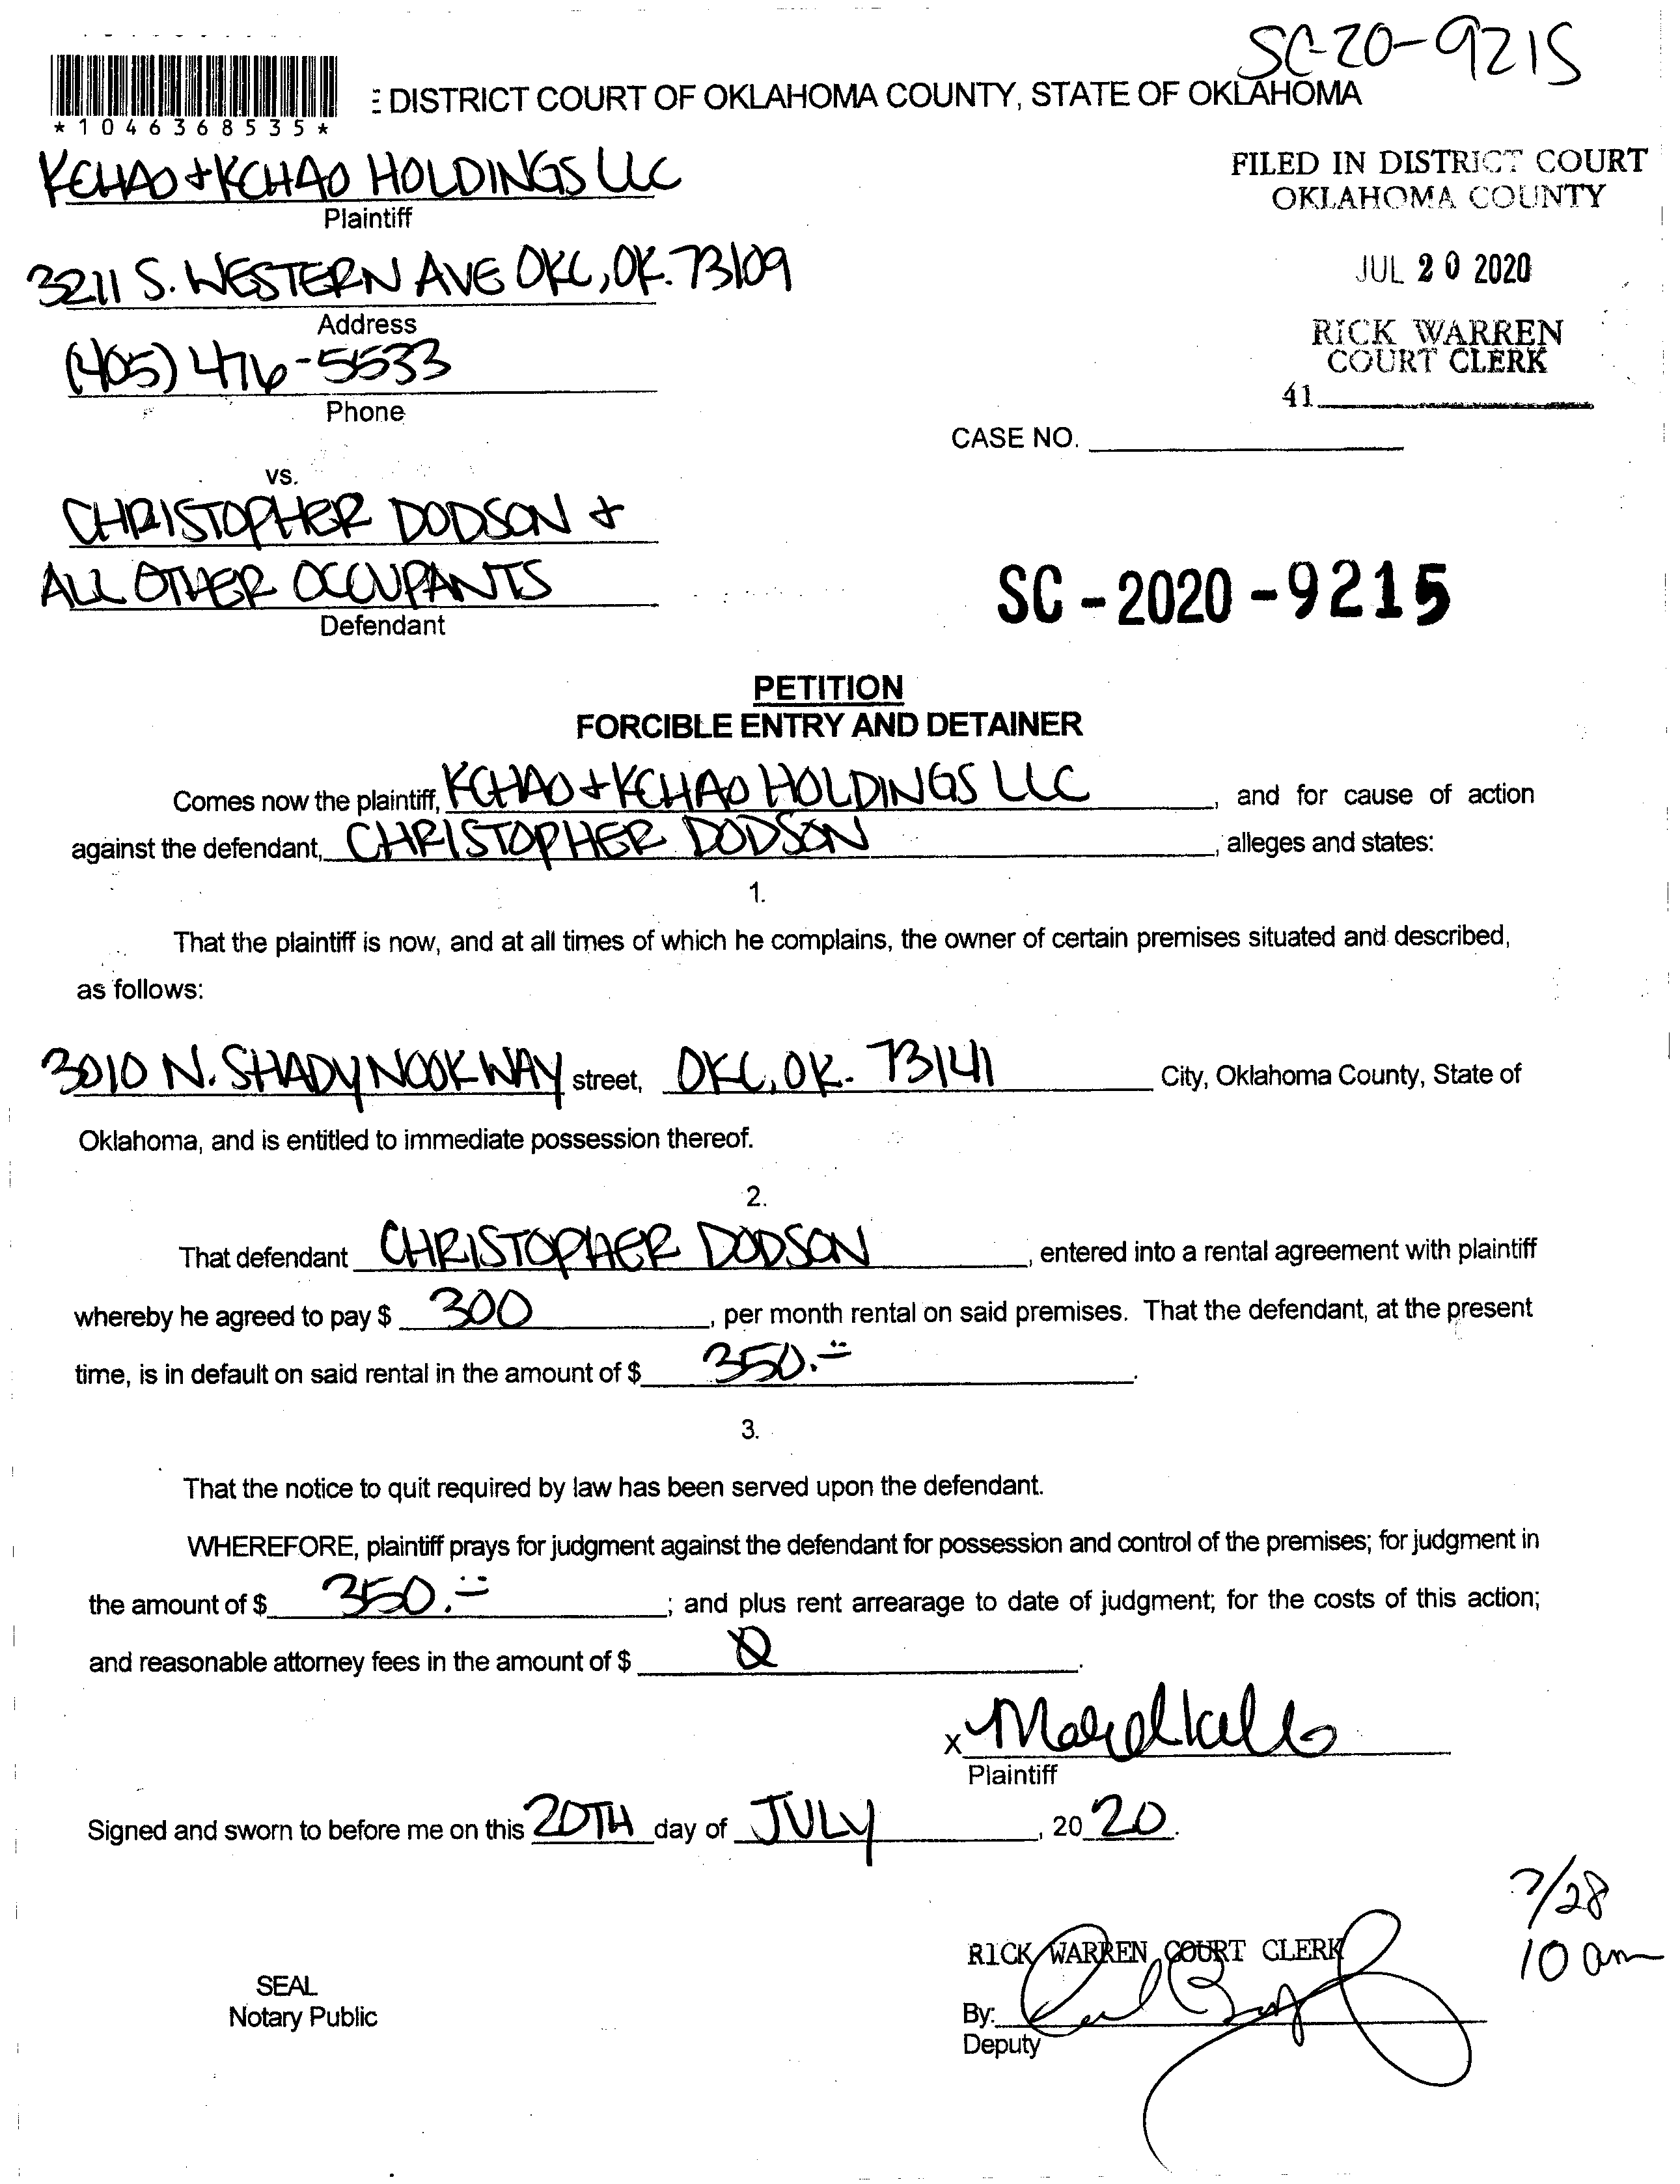 SC-20-9215
E DISTRICT COURT OF OKLAHOMA COUNTY, STATE OF OKLAHOMA
*1046368535*
KCHAO + KCHAO HOLDINGS LLC
Plaintiff
FILED IN DISTRICT COURT
OKLAHOMA COUNTY
3211 S. WESTERN AVE OKC, OK. 73109
Address
JUL 20 2020
(405) 476-5533
Phone
RICK WARREN
COURT CLERK
41
CASE NO.
vs.
CHRISTOPHER DODSON +
ALL OTHER OCCUPANTS
Defendant
SC-2020-9215
PETITION
FORCIBLE ENTRY AND DETAINER
Comes now the plaintiff, KCHAO + KCHAO HOLDINGS LLC, and for cause of action
against the defendant, CHRISTOPHER DODSON, alleges and states:
1.
That the plaintiff is now, and at all times of which he complains, the owner of certain premises situated and described,
as follows:
3010 N. SHADYNOOK WAY street, OKC, OK. 73141 City, Oklahoma County, State of
Oklahoma, and is entitled to immediate possession thereof.
2.
That defendant CHRISTOPHER DODSON, entered into a rental agreement with plaintiff
whereby he agreed to pay $ 300, per month rental on said premises. That the defendant, at the present
time, is in default on said rental in the amount of $ 350.--.
3.
That the notice to quit required by law has been served upon the defendant.
WHEREFORE, plaintiff prays for judgment against the defendant for possession and control of the premises; for judgment in
the amount of $ 350.--; and plus rent arrearage to date of judgment; for the costs of this action;
and reasonable attorney fees in the amount of $ 0.
X
Plaintiff
Signed and sworn to before me on this 20TH day of JULY, 20 20.
7/28
10 am
RICK WARREN COURT CLERK
SEAL
Notary Public
By:
Deputy